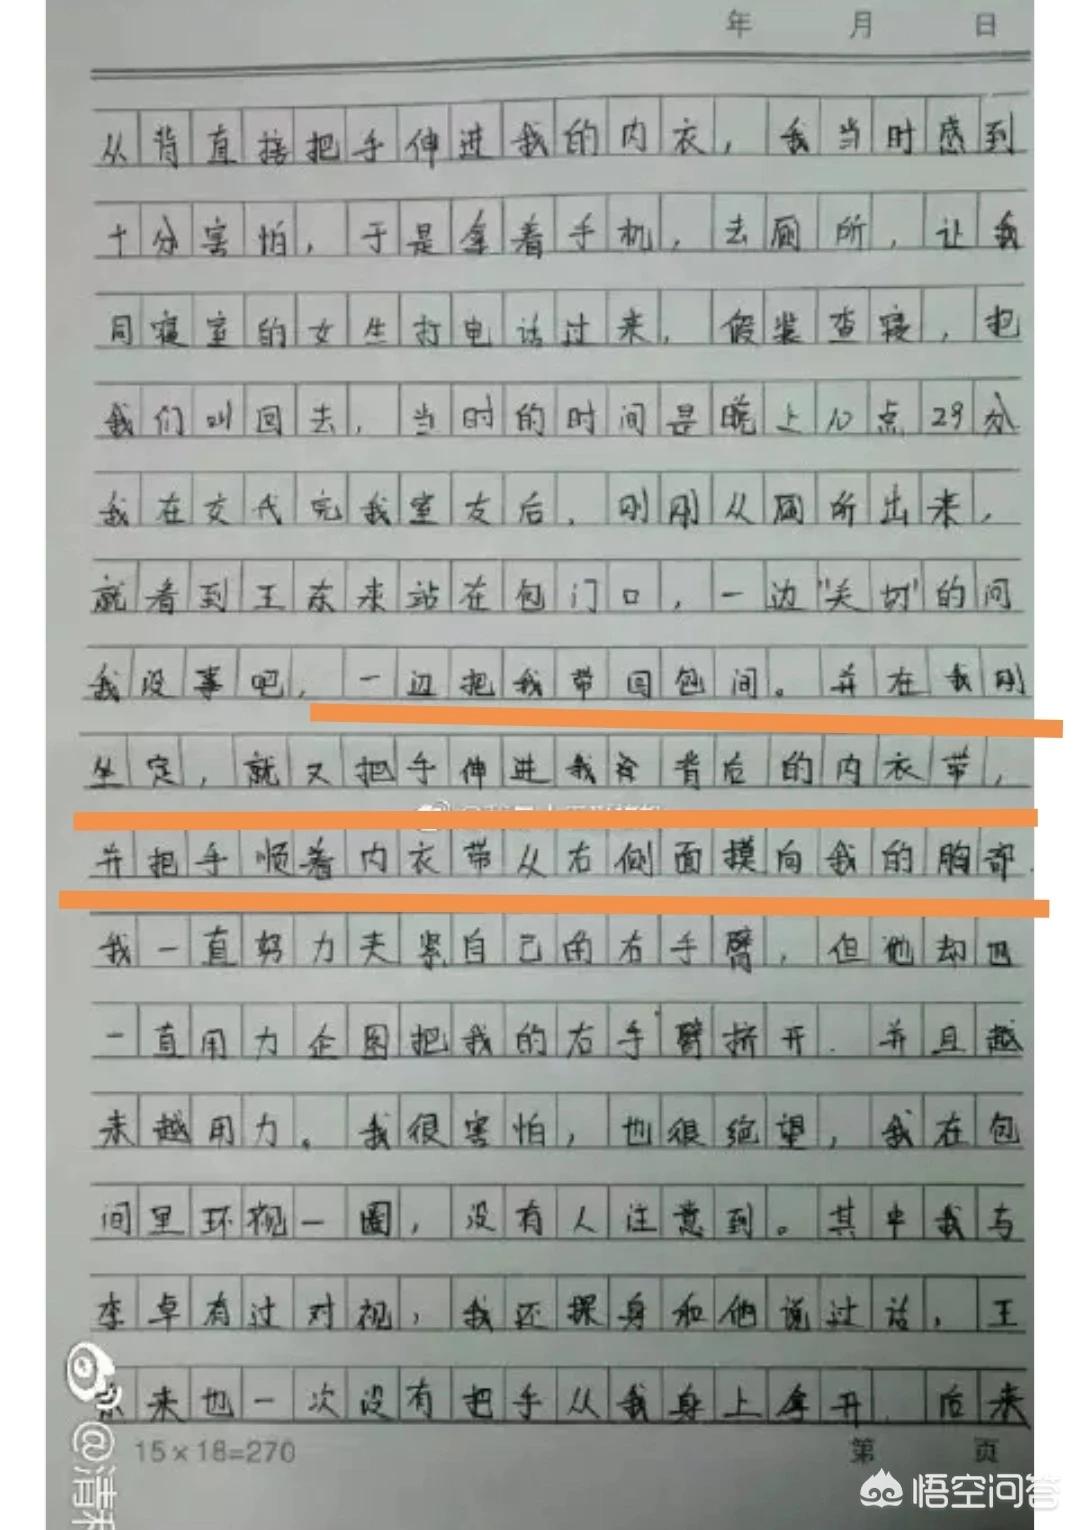 年 月 日
从背直接把手伸进我的内衣，我当时感到
十分害怕，于是拿着手机，去厕所，让我
同寝室的女生打电话过来，假装查寝，把
我们叫回去，当时的时间是晚上10点29分
我在交代完我室友后，刚刚从厕所出来，
就看到王东来站在包门口，一边"关切"的问
我没事吧，一边把我带回包间。并在我刚
坐定，就又把手伸进我背后的内衣带，
并把手顺着内衣带从右侧面摸向我的胸部
我一直努力夹紧自己的右手臂，但他却
一直用力企图把我的右手臂挤开．并且越
来越用力。我很害怕，也很绝望，我在包
间里环视一圈，没有人注意到。其中我与
李卓有过对视，我还探身和他说过话，王
来也一次没有把手从我身上拿开．后来
15×18=270 第 页
@清和
悟空问答